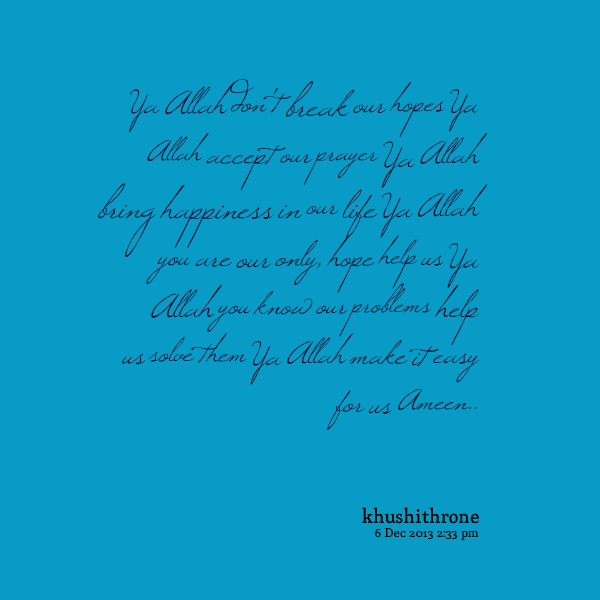 Ya Allah Don't break our hopes Ya
Allah accept our prayer Ya Allah
bring happiness in our life Ya Allah
you are our only, hope help us Ya
Allah you know our problems help
us solve them Ya Allah make it easy
for us Ameen..
khushithrone
6 Dec 2013 2:33 pm